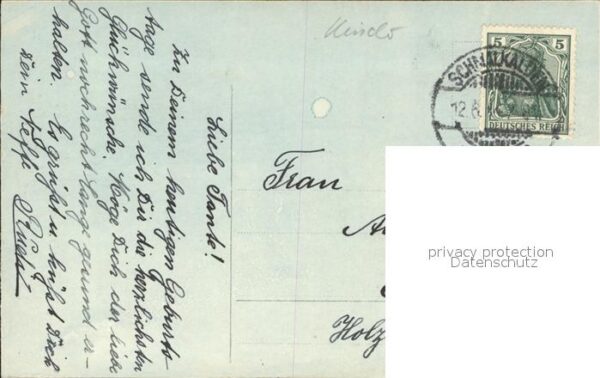 Liebe Tante!
Zu Deinem heutigen Geburts-
tage sende ich Dir die herzlichsten
Glückwünsche. Möge Dich der liebe
Gott noch recht lange gesund er-
halten. Es grüßt u. küßt Dich
Dein Neffe
Kinder
5 5
DEUTSCHES REICH
SCHMALKALDEN
12.8.
Frau
Holz
privacy protection
Datenschutz